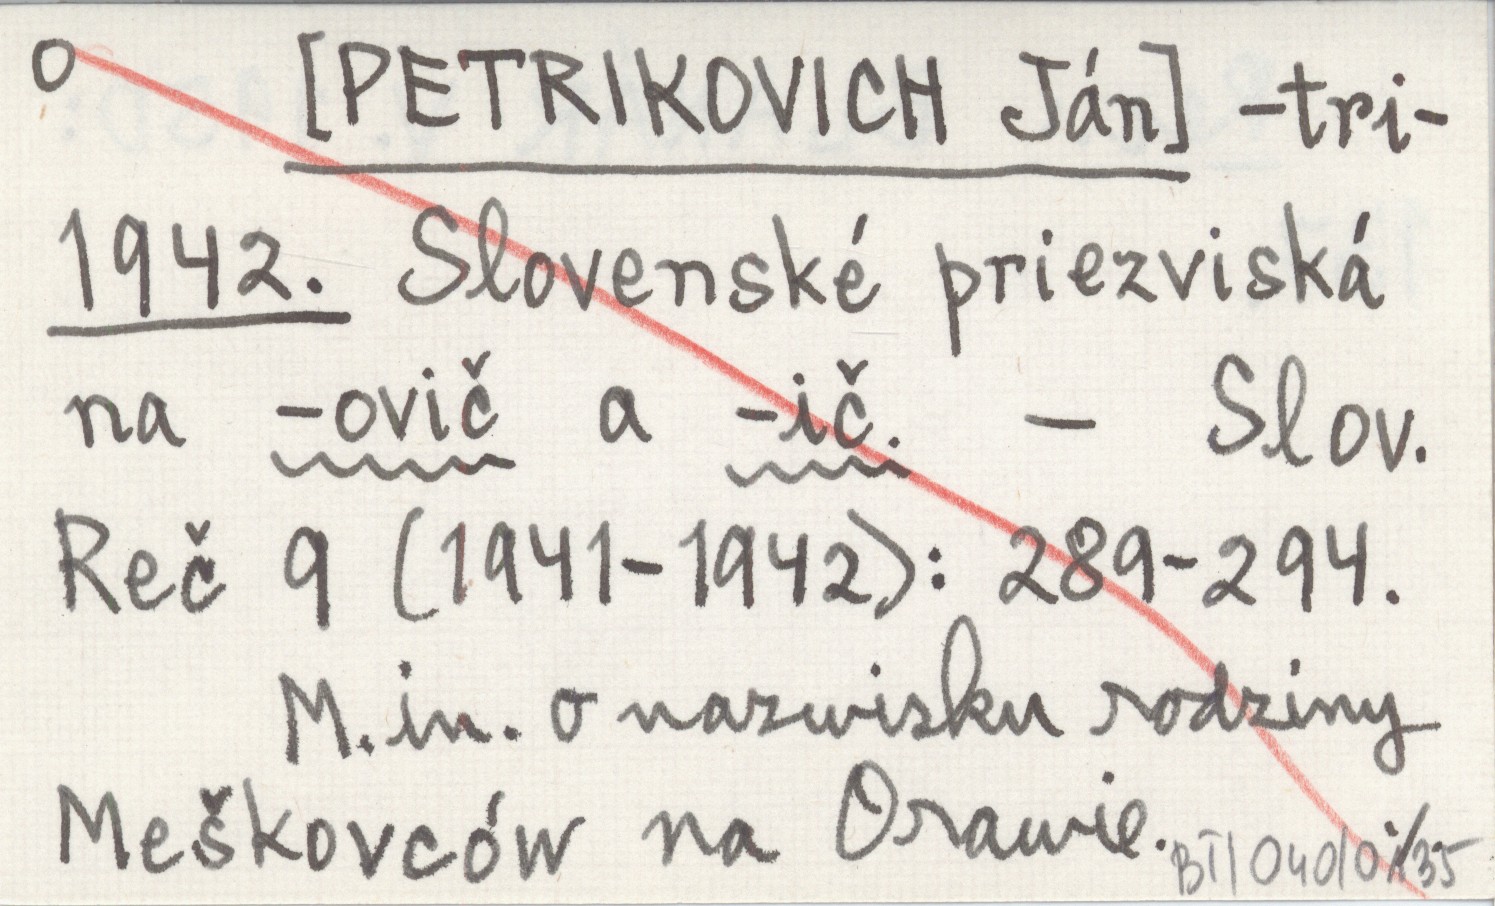 o [PETRIKOVICH Ján] -tri-
1942. Slovenské priezviská
na -ovič a -ič. – Slov.
Reč 9 (1941-1942): 289-294.
M.in. o nazwisku rodziny
Meškovców na Orawie.